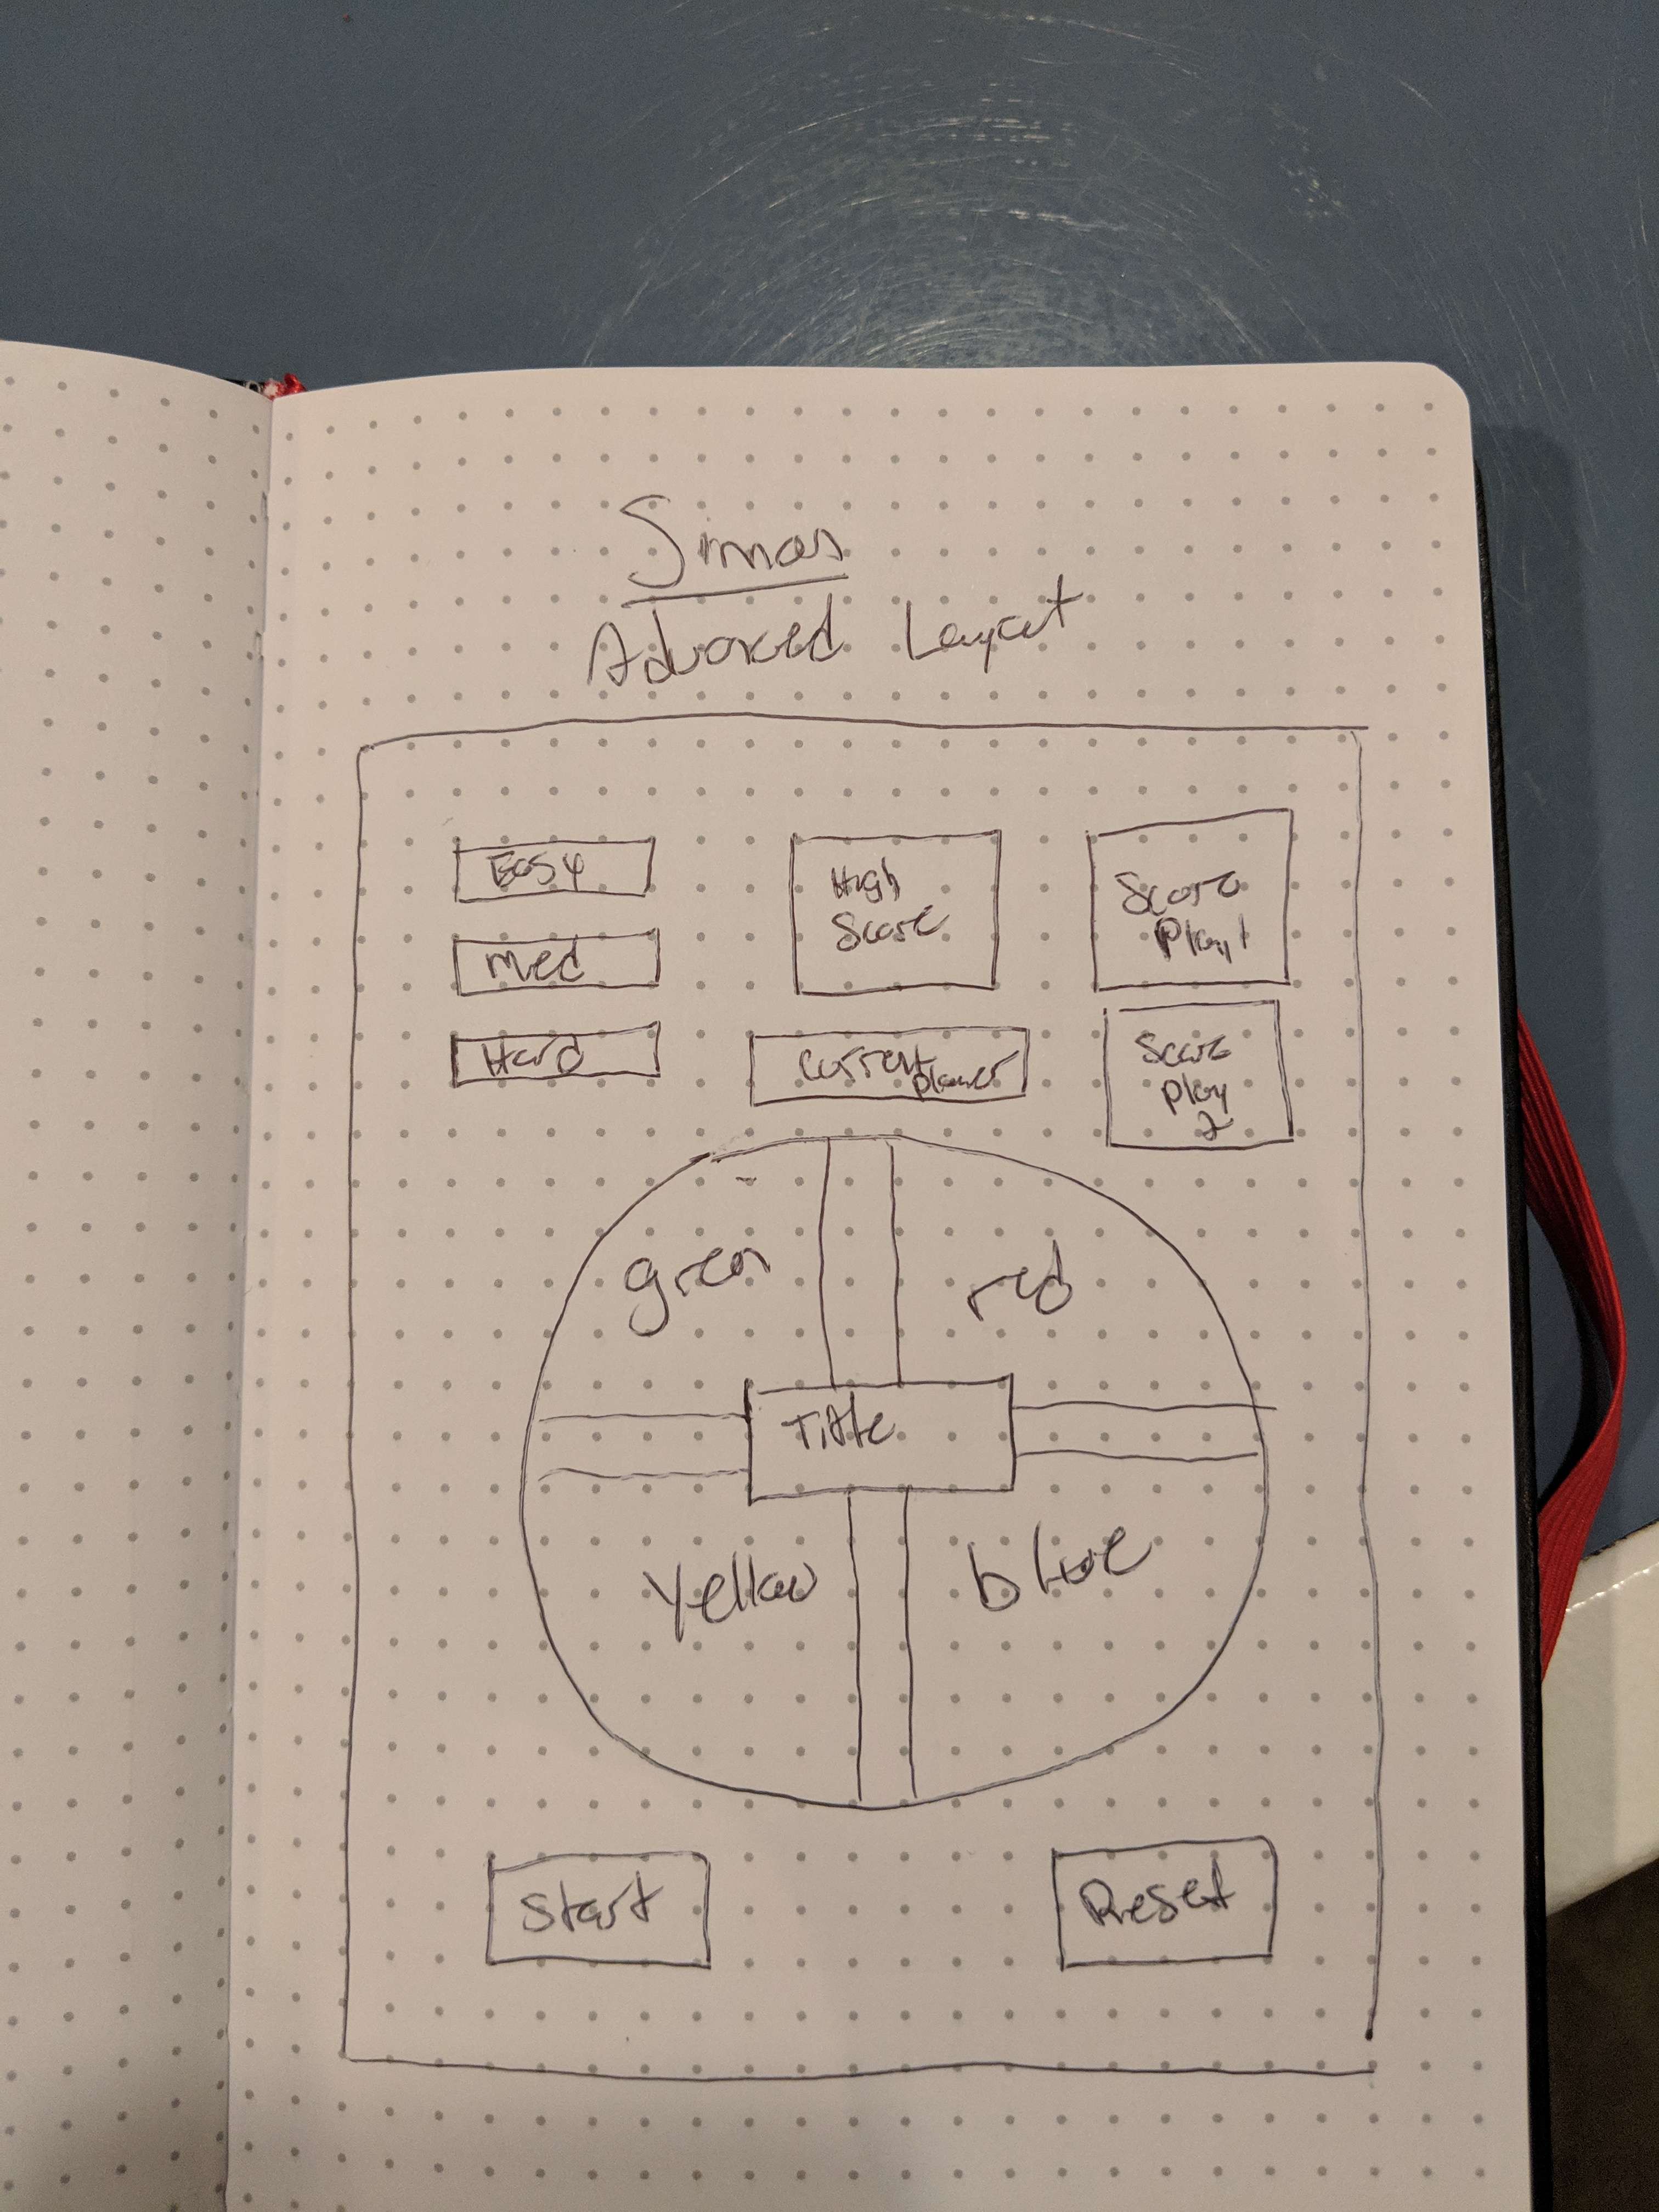 Simon
Advanced Layout
Easy
Med
Hard
High
Score
Current
Player
Score
Play 1
Score
Play
2
green
red
Title
yellow
blue
Start
Reset